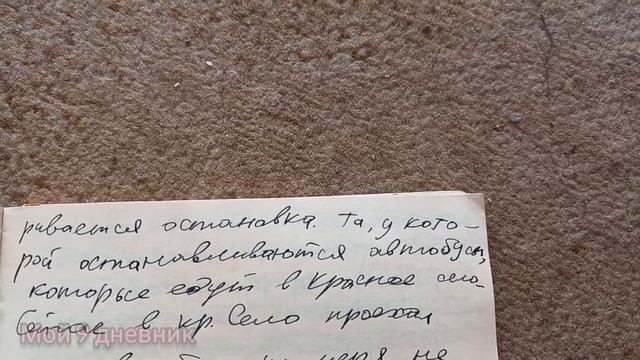 ривается остановка. Та, у кото-
рой останавливаются автобусы,
которые едут в Красное село.
в кр. Село проехал
меня не
Мой 9 дневник